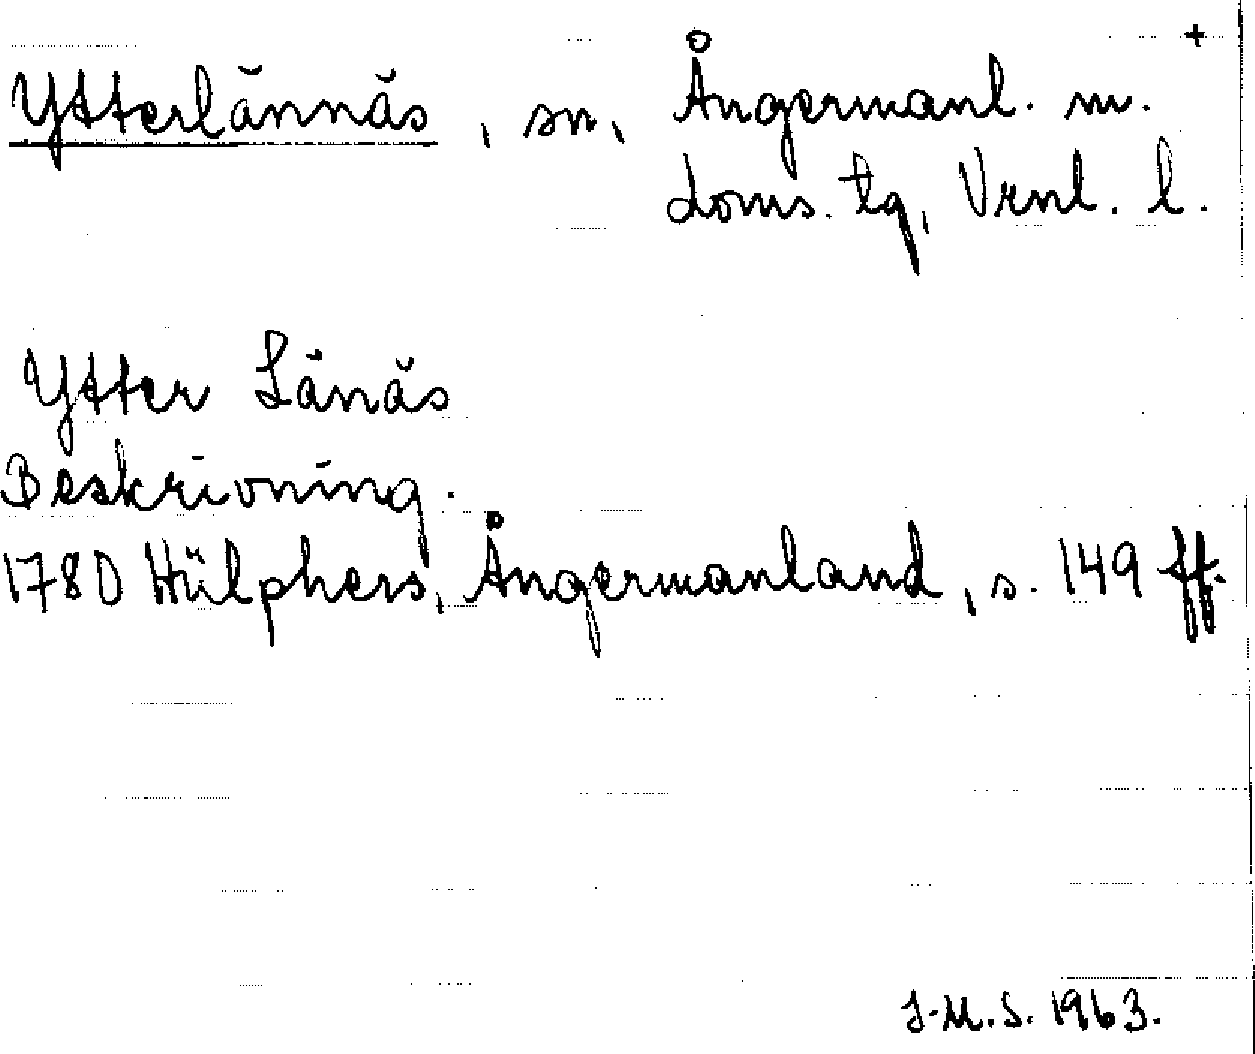 Ytterlännäs, sn, Ångermanl. m. +
doms. tg, Vrnl. l.
Ytter Länäs
Beskrivning.
1780 Hülphers, Ångermanland, s. 149 ff.
J-M.S. 1963.